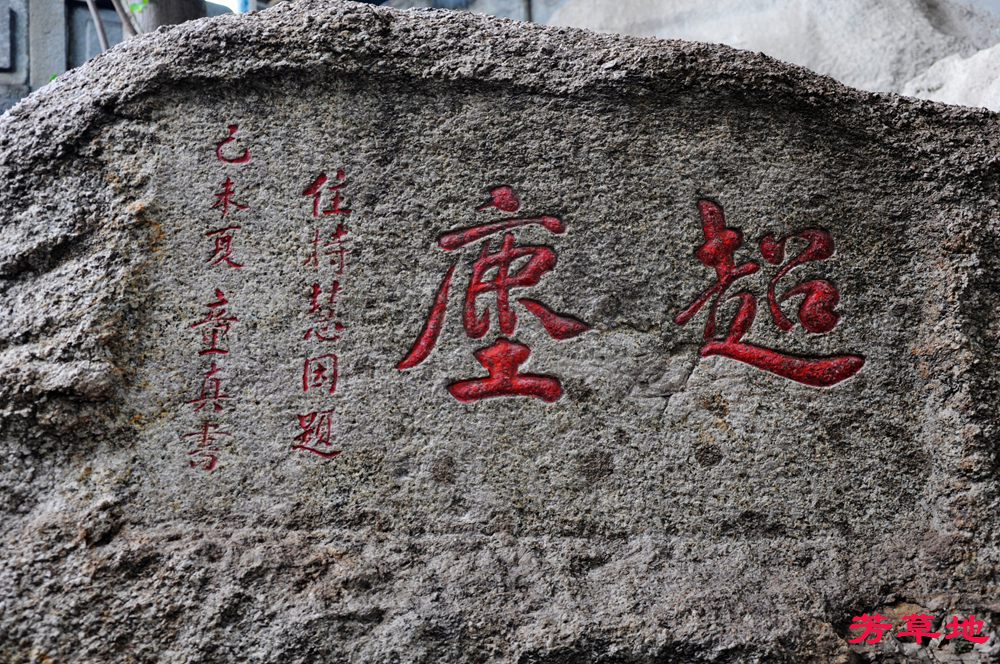 超塵
住持慧因題
己未夏童真書
芳草地